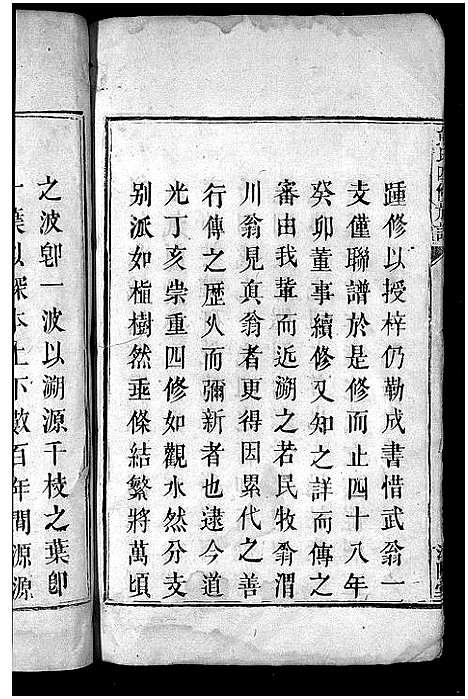 踵修以授梓仍勒成書惜武翁一
支僅聯譜於是修而止四十八年
癸卯董事續修又知之詳而傳之
審由我輩而近溯之若民牧翁渭
川翁見真翁者更得因累代之善
行傳之歷久而彌新者也逮今道
光丁亥崇重四修如觀水然分支
别派如植樹然垂條結繁將萬頃
之波卽一波以溯源千枝之葉卽
一葉以探本上下數百年間源源
氏四修族譜